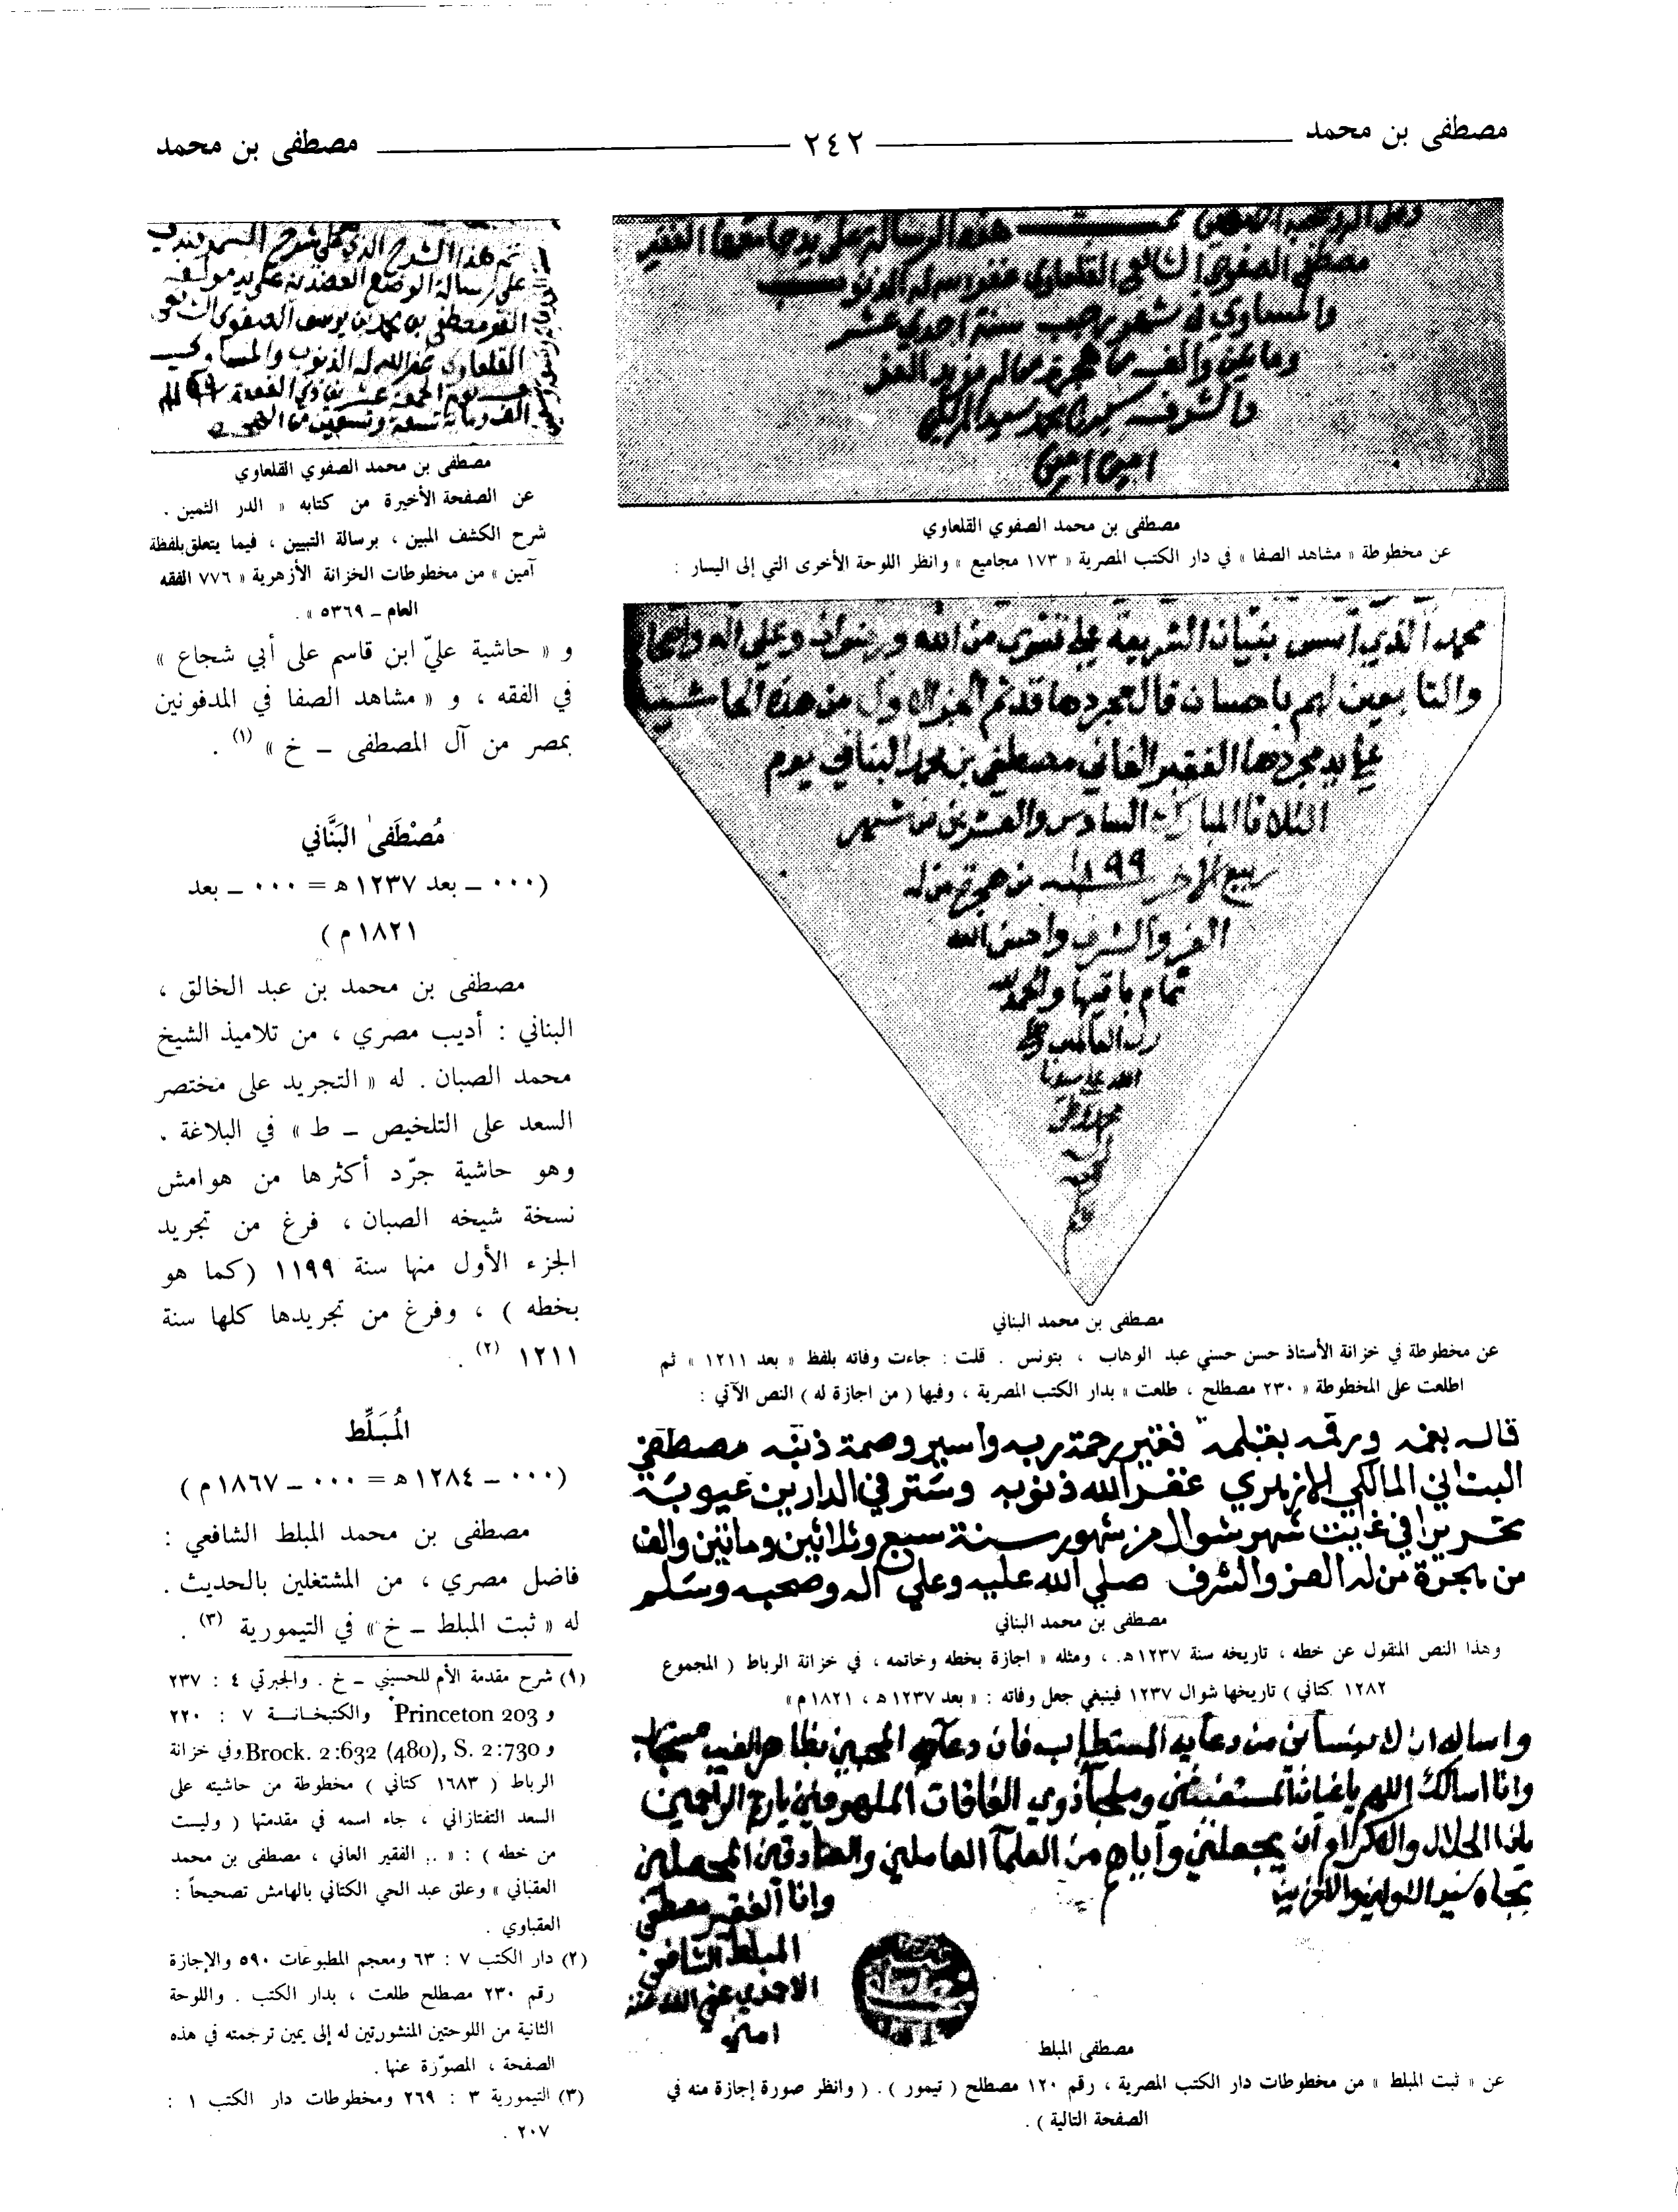 مصطفى بن محمد ٢٤٢ مصطفى بن محمد
والمساوي في شهر رجب سنة احدي عشر
امين امين
مصطفى بن محمد الصفوي القلعاوي
عن مخطوطة « مشاهد الصفا » في دار الكتب المصرية « ١٧٣ مجاميع » وانظر اللوحة الأخرى التي إلى اليسار :
محمد الذي اسس بنيان الشريعة على تقوى من الله ورضوان وعلى اله واصحابه
والتابعين لهم باحسان قال مجردها قد تم الجزء الاول من هذه الحاشية
على يد مجردها الفقير الفاني مصطفى بن محمد البناني يوم
الثلاثا المبارك السادس والعشرين من شهر
ربيع الاخر ١١٩٩ من هجرة من له
العز والشرف واحسن الله
تمام باقيها والحمد لله
رب العالمين
مصطفى بن محمد البناني
عن مخطوطة في خزانة الأستاذ حسن حسني عبد الوهاب ، بتونس . قلت : جاءت وفاته بلفظ « بعد ١٢١١ » ثم
اطلعت على المخطوطة « ٢٣٠ مصطلح ، طلعت » بدار الكتب المصرية ، وفيها ( من اجازة له ) النص الآتي :
قاله بفمه ورقمه بقلمه فقير رحمة ربه واسير وصمة ذنبه مصطفى
البناني المالكي الازهري غفر الله ذنوبه وستر في الدارين عيوبه
تحريرا في غاية شهر شوال من شهور سنة سبع وثلاثين ومائتين والف
من هجرة من له العز والشرف صلى الله عليه وعلى آله وصحبه وسلم
مصطفى بن محمد البناني
وهذا النص المنقول عن خطه ، تاريخه سنة ١٢٣٧ هـ . ومثله « اجازة بخطه وخاتمه ، في خزانة الرباط ( المجموع
١٢٨٢ كتاني ) تاريخها شوال ١٢٣٧ فينبغي جعل وفاته : « بعد ١٢٣٧ هـ ، ١٨٢١ م »
واساله ان لا ينساني من دعايه المستطاب فان دعا المحبين بظاهر الغيب
وانا اسالك اللهم يا غياث المستغيثين وملجأ ذوي الفاقات الملهوفين يا ارحم الراحمين
ياذا الجلال والاكرام ان يجعلني واياه من العلما العاملين والصادقين
بجاه سيد الاولين والاخرين
وانا الفقير مصطفى
المبلط الشافعي
الاحمدي عفي الله عنه
امين
مصطفى المبلط
عن « ثبت المبلط » من مخطوطات دار الكتب المصرية ، رقم ١٢٠ مصطلح ( تيمور ) . ( وانظر صورة إجازة منه في
الصفحة التالية ) .
تم هذا الشرح الذي على شرح السمرقندي
على رسالة الوضع العضدية على يد مولفه
الفقير مصطفى بن محمد بن يوسف الصفوي الشافعي
القلعاوي غفر الله له الذنوب والمساوي
الف ومائة تسعة وتسعين من الهجرة
مصطفى بن محمد الصفوي القلعاوي
عن الصفحة الأخيرة من كتابه « الدر الثمين .
شرح الكشف المبين ، برسالة التبيين ، فيما يتعلق بلفظة
آمين » من مخطوطات الخزانة الأزهرية « ٧٧٦ الفقه
العام – ٥٣٦٩ » .
و « حاشية عليّ ابن قاسم على أبي شجاع »
في الفقه ، و « مشاهد الصفا في المدفونين
بمصر من آل المصطفى – خ » (١) .
مُصْطَفىٰ البَنَّاني
(٠٠٠ – بعد ١٢٣٧ هـ = ٠٠٠ – بعد
١٨٢١ م)
مصطفى بن محمد بن عبد الخالق ،
البناني : أديب مصري ، من تلاميذ الشيخ
محمد الصبان . له « التجريد على مختصر
السعد على التلخيص – ط » في البلاغة .
وهو حاشية جرّد أكثرها من هوامش
نسخة شيخه الصبان ، فرغ من تجريد
الجزء الأول منها سنة ١١٩٩ (كما هو
بخطه ) ، وفرغ من تجريدها كلها سنة
١٢١١ (٢) .
المُبَلِّط
(٠٠٠ – ١٢٨٤ هـ = ٠٠٠ – ١٨٦٧ م)
مصطفى بن محمد المبلط الشافعي :
فاضل مصري ، من المشتغلين بالحديث .
له « ثبت المبلط – خ » في التيمورية (٣) .
(١) شرح مقدمة الأم للحسيني – خ . والجبرتي ٤ : ٢٣٧
و Princeton 203 والكتبخانــة ٧ : ٢٢٠
و Brock. 2:632 (480), S. 2:730 وفي خزانة
الرباط ( ١٦٨٣ كتاني ) مخطوطة من حاشيته على
السعد التفتازاني ، جاء اسمه في مقدمتها ( وليست
من خطه ) : « .. الفقير العاني ، مصطفى بن محمد
العقباني » وعلق عبد الحي الكتاني بالهامش تصحيحاً :
العقباوي .
(٢) دار الكتب ٧ : ٦٣ ومعجم المطبوعات ٥٩٠ والإجازة
رقم ٢٣٠ مصطلح طلعت ، بدار الكتب . واللوحة
الثانية من اللوحتين المنشورتين له إلى يمين ترجمته في هذه
الصفحة ، المصوّرة عنها .
(٣) التيمورية ٣ : ٢٦٩ ومخطوطات دار الكتب ١ :
٢٠٧ .